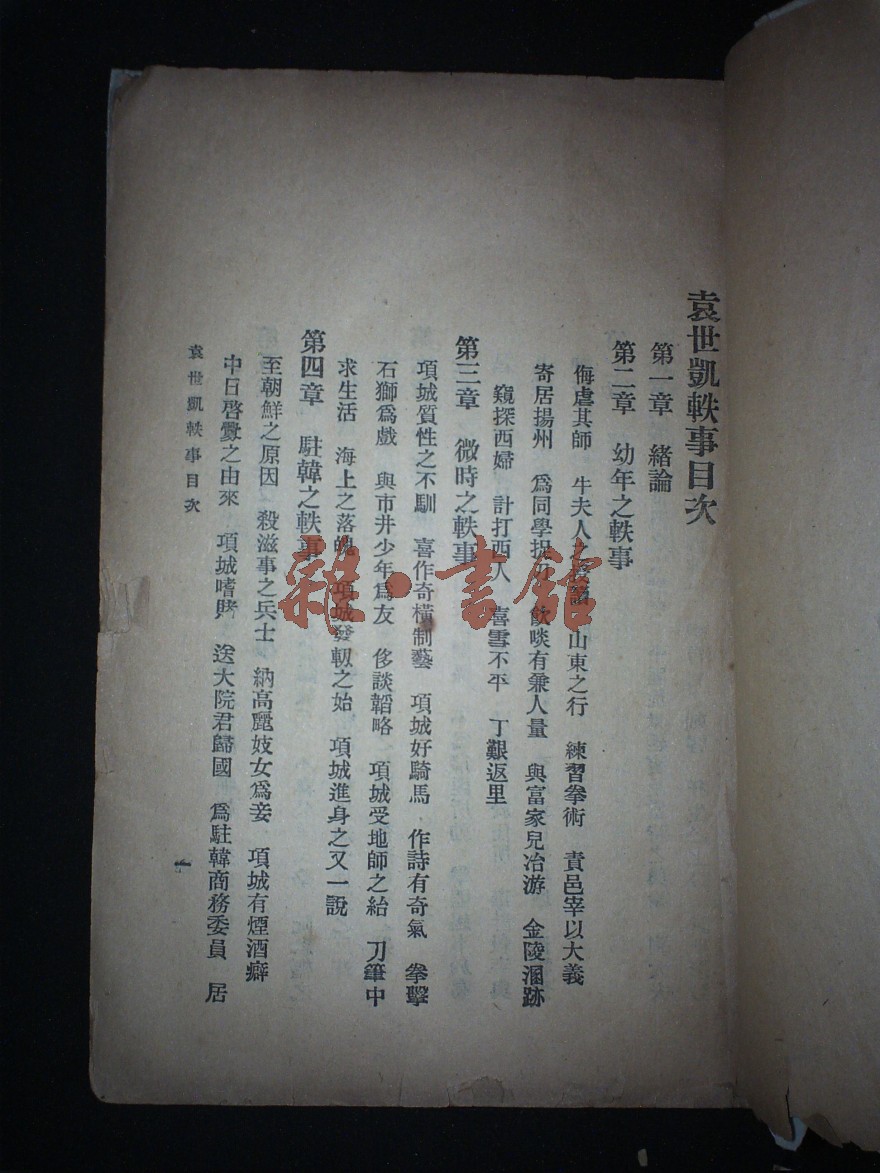 袁世凱軼事目次
第一章 緒論
第二章 幼年之軼事
侮虐其師 牛夫人之 山東之行 練習拳術 責邑宰以大義
寄居揚州 爲同學捉刀 飲啖有兼人量 與富家兒冶游 金陵溷跡
窺探西婦 計打西人 喜雪不平 丁艱返里
第三章 微時之軼事
項城質性之不馴 喜作奇橫制藝 項城好騎馬 作詩有奇氣 拳擊
石獅爲戲 與市井少年爲友 侈談韜略 項城受地師之紿 刀筆中
求生活 海上之落魄 項城發軔之始 項城進身之又一說
第四章 駐韓之軼事
至朝鮮之原因 殺滋事之兵士 納高麗妓女爲妾 項城有煙酒癖
中日啓釁之由來 項城嗜賭 送大院君歸國 爲駐韓商務委員 居
袁世凱軼事目次
一
雜·書館